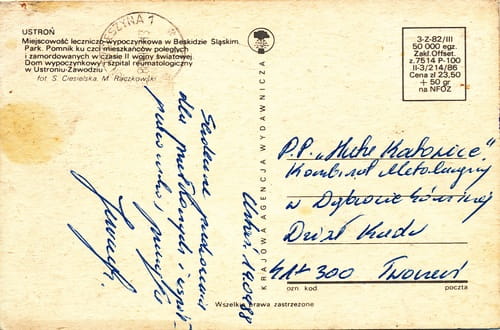 USTROŃ
Miejscowość leczniczo-wypoczynkowa w Beskidzie Śląskim.
Park. Pomnik ku czci mieszkańców poległych
i zamordowanych w czasie II wojny światowej
Dom wypoczynkowy i szpital reumatologiczny
w Ustroniu-Zawodziu
fot. S. Ciesielska, M. Raczkowski
3-Z-82/III
50 000 egz.
Zakł.Offset.
z.7514 P-100
II-3/214/86
Cena zł 23,50
+ 50 gr
na NFOZ
KRAJOWA AGENCJA WYDAWNICZA
Serdeczne pozdrowienia
dla
Ustroń,
P.P. „Huta Katowice"
Kombinat Metalurgiczny
w Dąbrowie Górniczej
Dział Kadr
41-300
ozn. kod.
poczta
Wszelkie prawa zastrzeżone